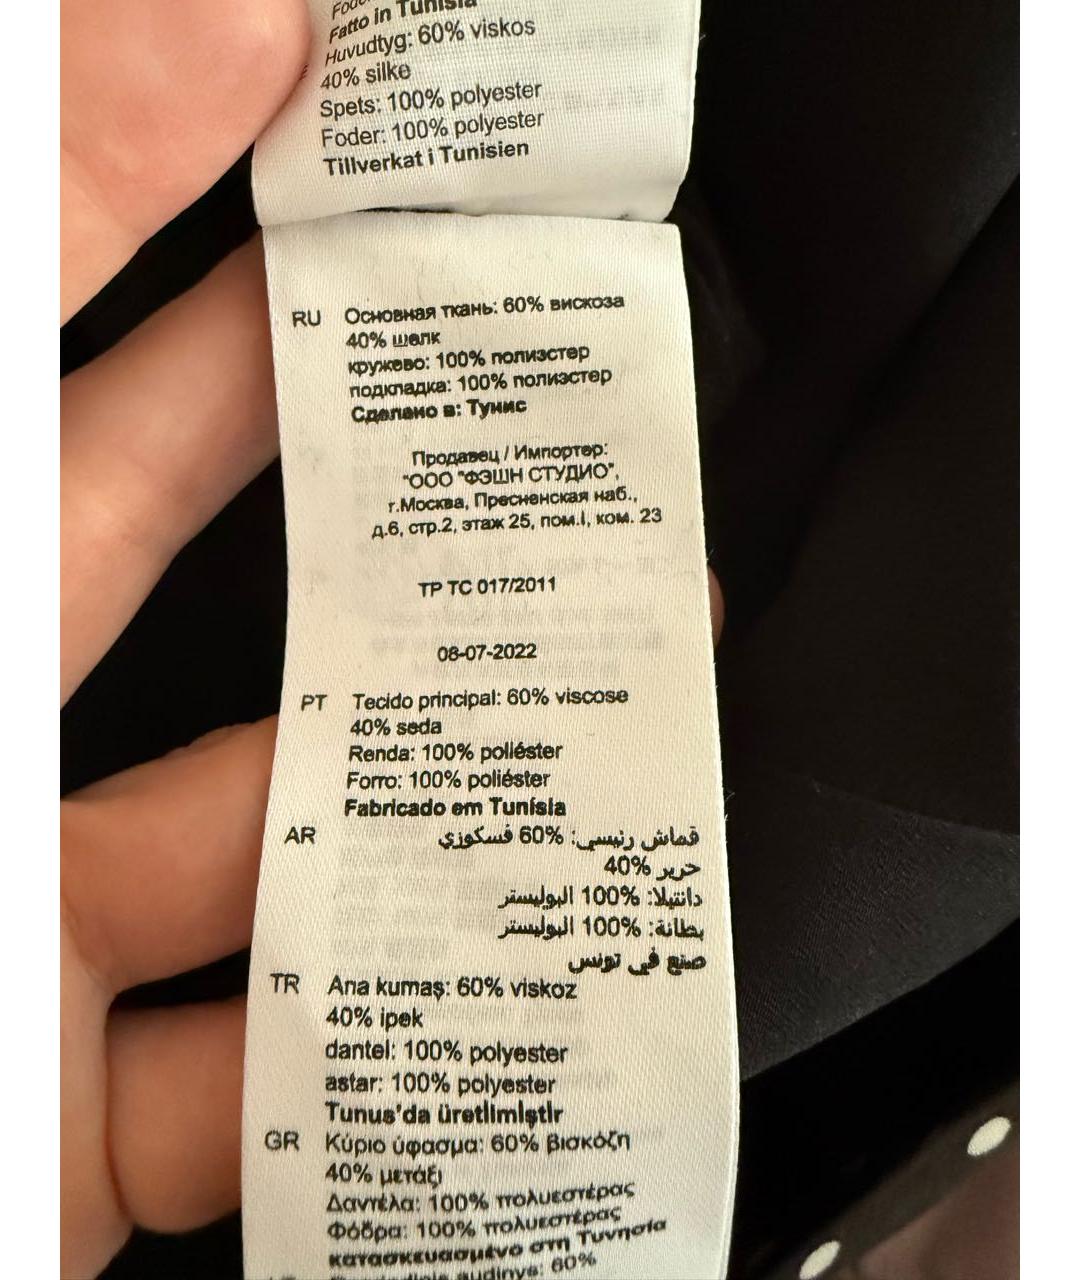 Fatto in Tunisia
Huvudtyg: 60% viskos
40% silke
Spets: 100% polyester
Foder: 100% polyester
Tillverkat i Tunisien
RU Основная ткань: 60% вискоза
40% шелк
кружево: 100% полиэстер
подкладка: 100% полиэстер
Сделано в: Тунис
Продавец / Импортер:
"ООО "ФЭШН СТУДИО",
г.Москва, Пресненская наб.,
д.6, стр.2, этаж 25, пом.I, ком. 23
ТР ТС 017/2011
08-07-2022
PT Tecido principal: 60% viscose
40% seda
Renda: 100% poliéster
Forro: 100% poliéster
Fabricado em Tunísia
AR قماش رئيسي: 60% فسكوزي
حرير 40%
دانتيلا: 100% البوليستر
بطانة: 100% البوليستر
صنع في تونس
TR Ana kumaş: 60% viskoz
40% ipek
dantel: 100% polyester
astar: 100% polyester
Tunus'da üretilmiştir
GR Κύριο ύφασμα: 60% βισκόζη
40% μετάξι
Δαντέλα: 100% πολυεστέρας
Φόδρα: 100% πολυεστέρας
κατασκευασμένο στη Τυνησία
audinys: 60%